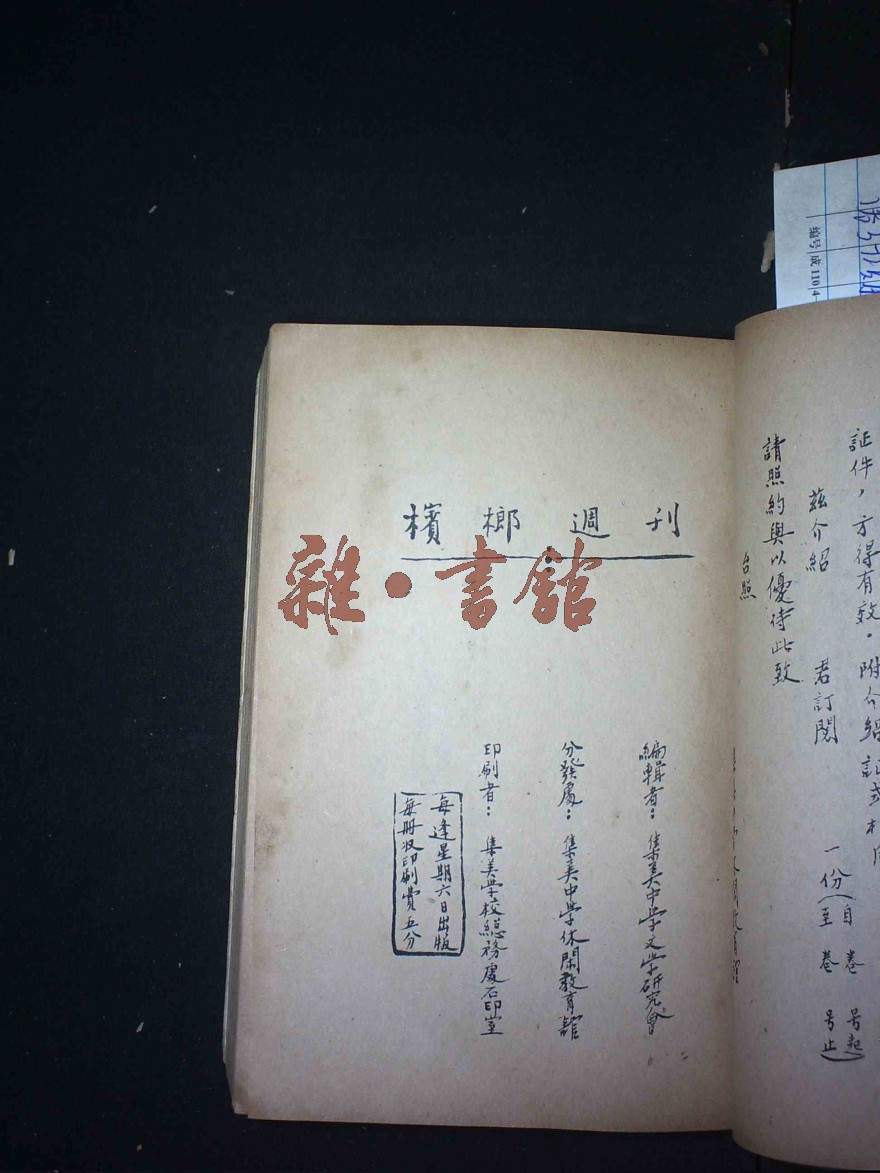 檳榔週刊
編輯者：集美中學文學研究會
分發處：集美中學休閑教育館
印刷者：集美學校總務處石印室
每逢星期六日出版
每冊收印刷費五分
雜·書館
証件，方得有效。附介紹証式
茲介紹 君訂閱 一份（自 卷 号起 至 卷 号止）
請照約與以優待此致
台照
编号 成110 4-